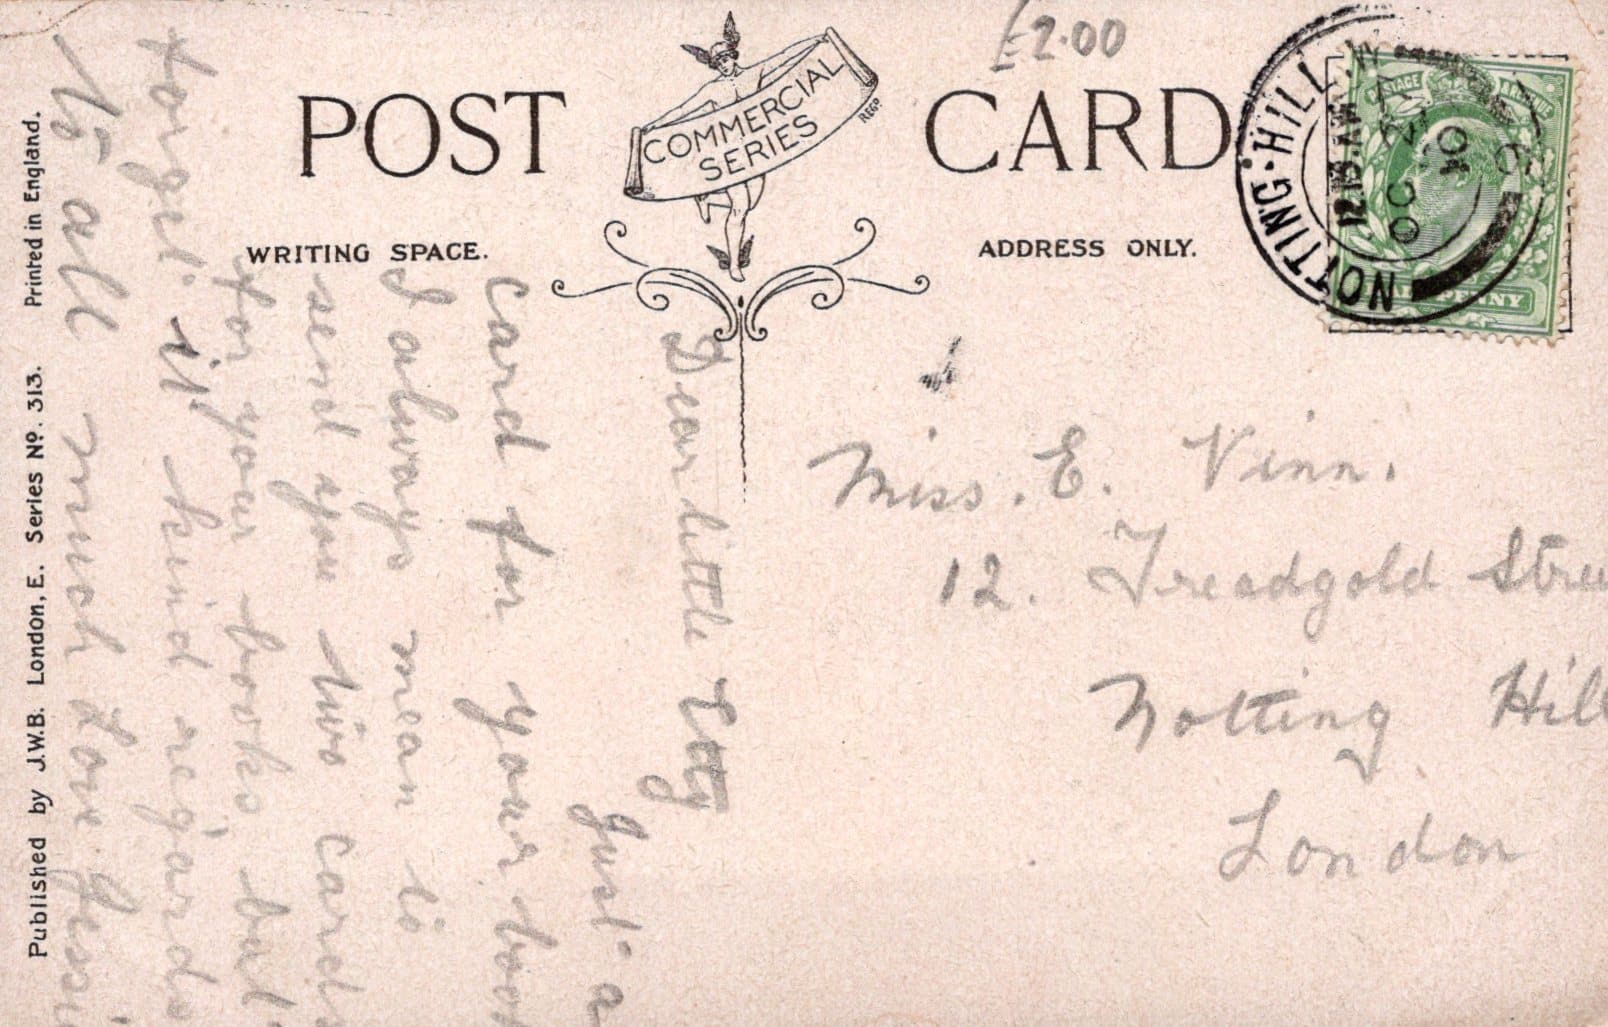 £2.00
POST CARD
COMMERCIAL
SERIES
REGD
WRITING SPACE.
ADDRESS ONLY.
NOTTING·HILL.W
12.15 AM
OC 27
10
POSTAGE
HALFPENNY
Miss. E. Vinn.
12. Treadgold Stree
Notting Hill
London
Dear little Etty
Just a
card for your boo
I always mean to
send you two cards
for your books but
forget it kind regards
to all much Love Jessi
Published by J.W.B. London, E. Series No. 313. Printed in England.